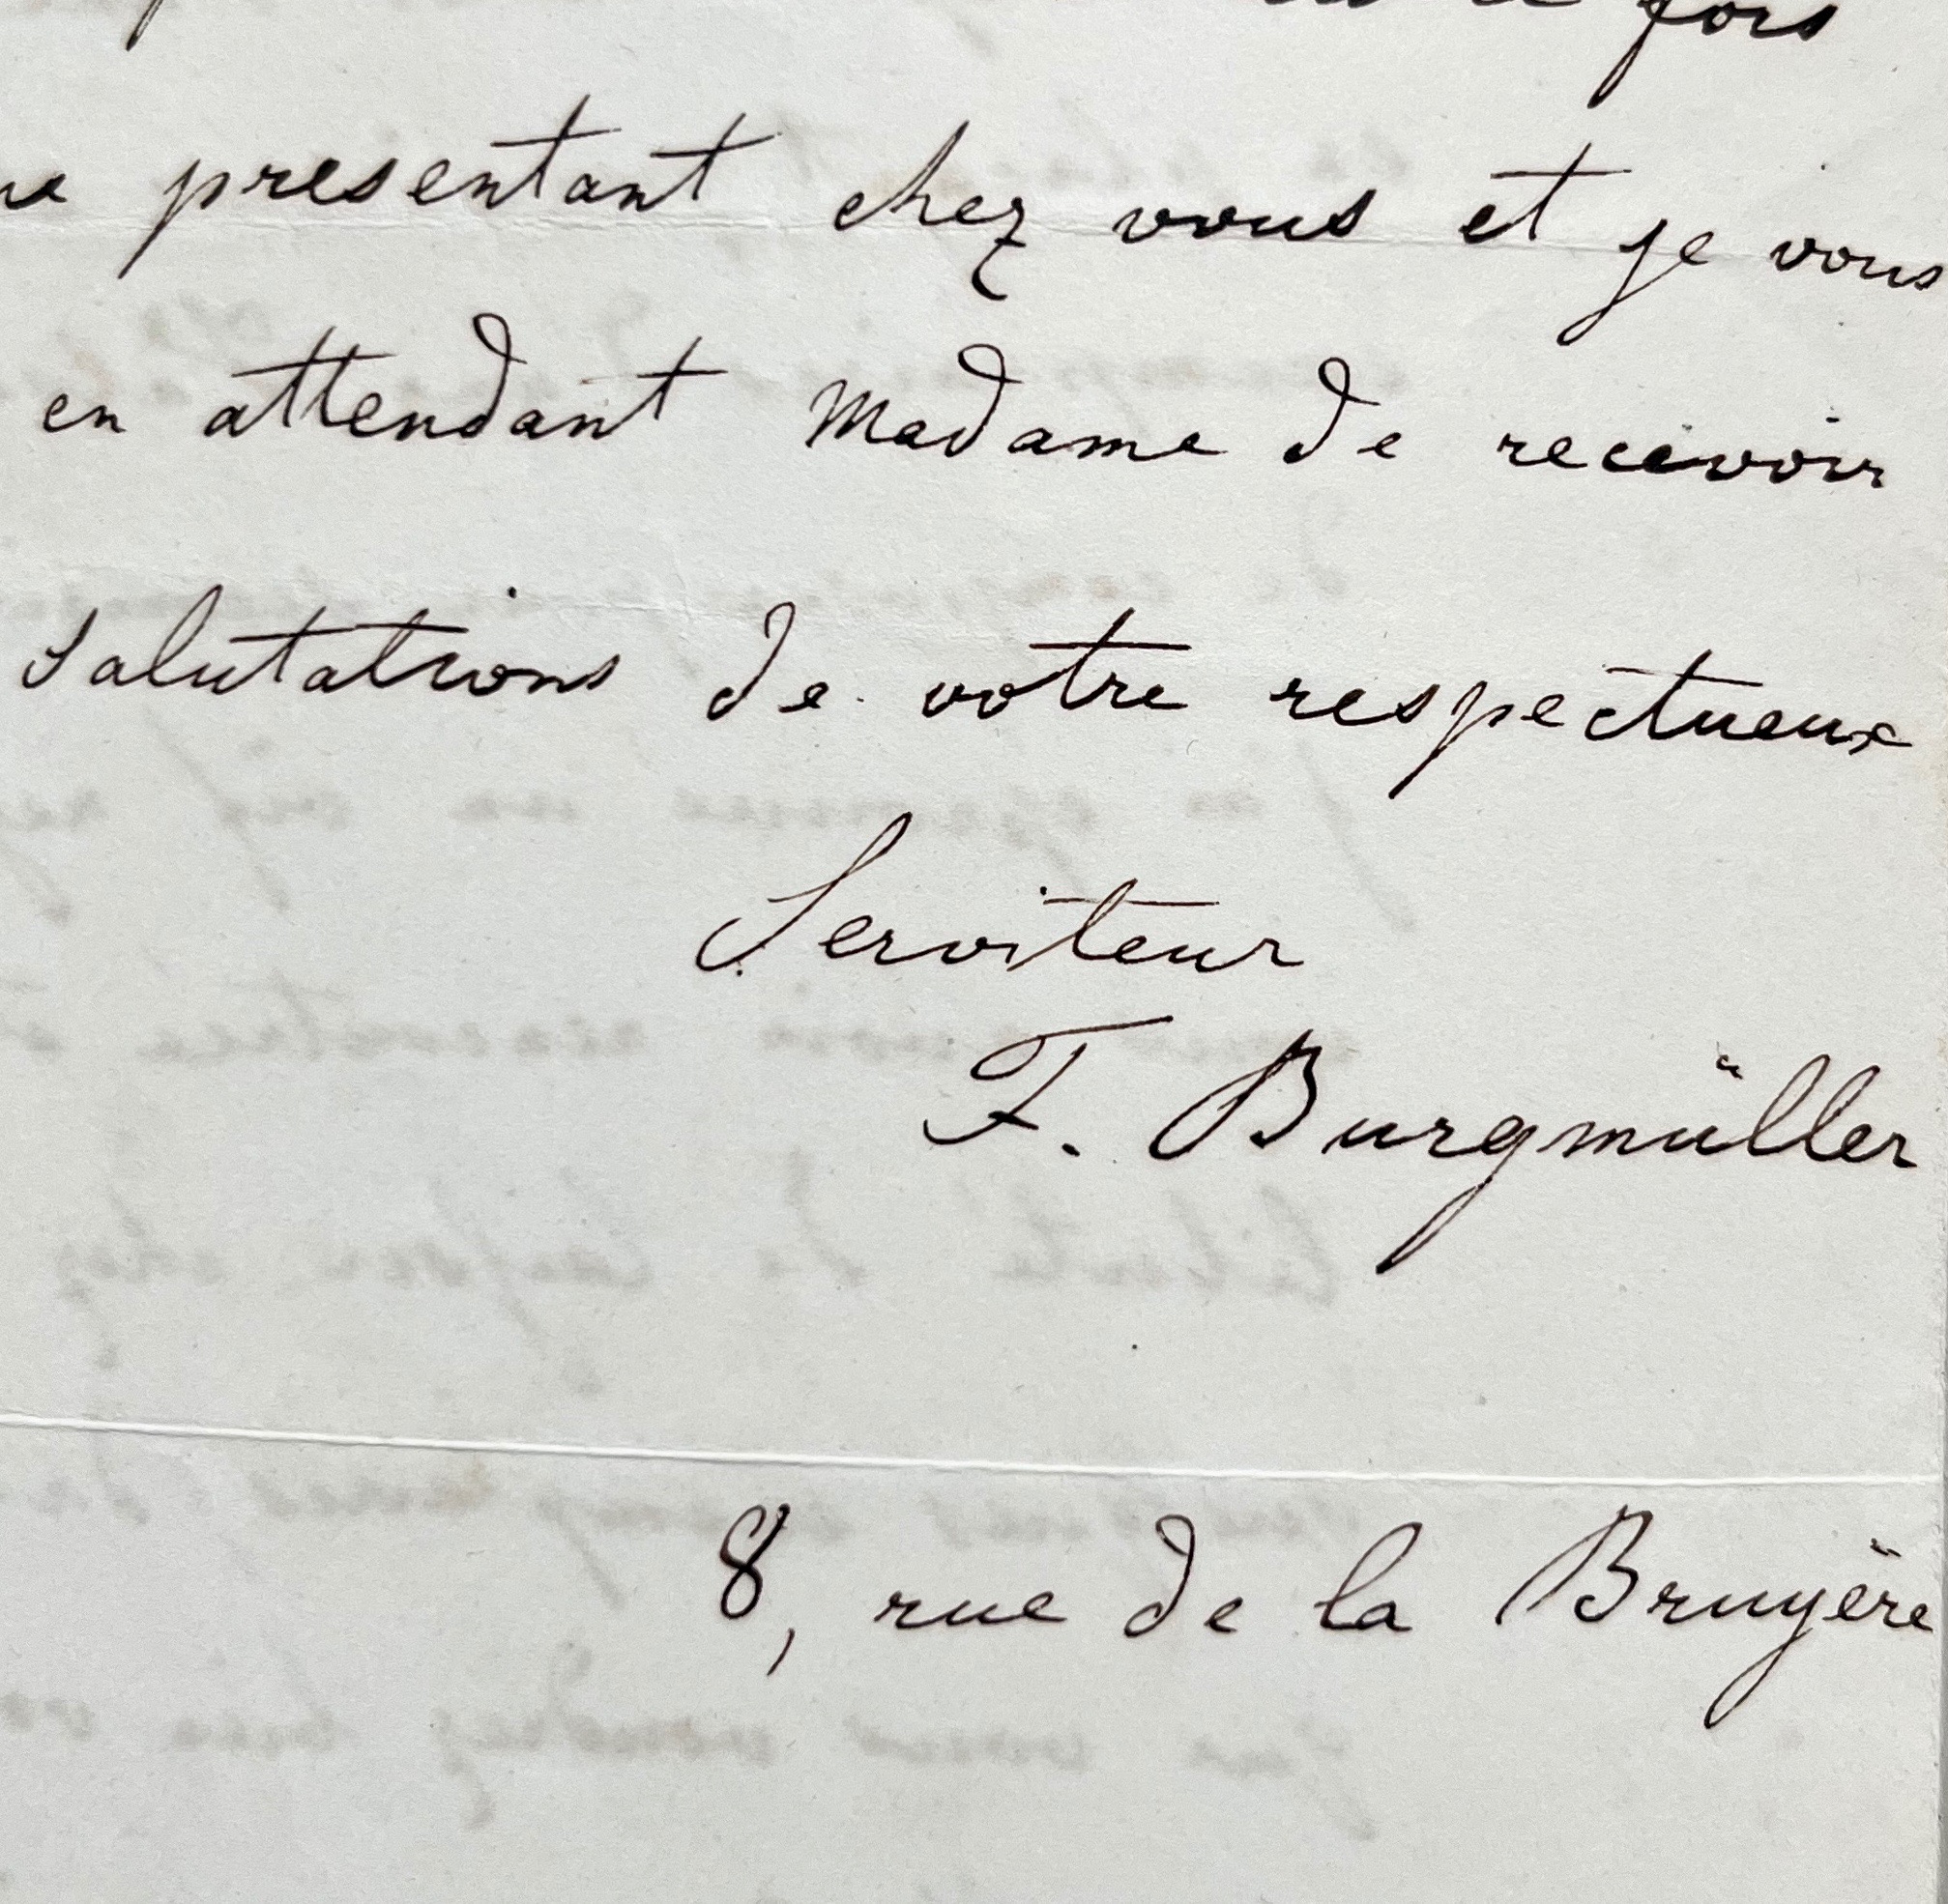 fois
presentant chez vous et je vous
en attendant Madame de recevoir
Salutations de votre respectueux
Serviteur
F. Burgmüller
8, rue de la Bruyère